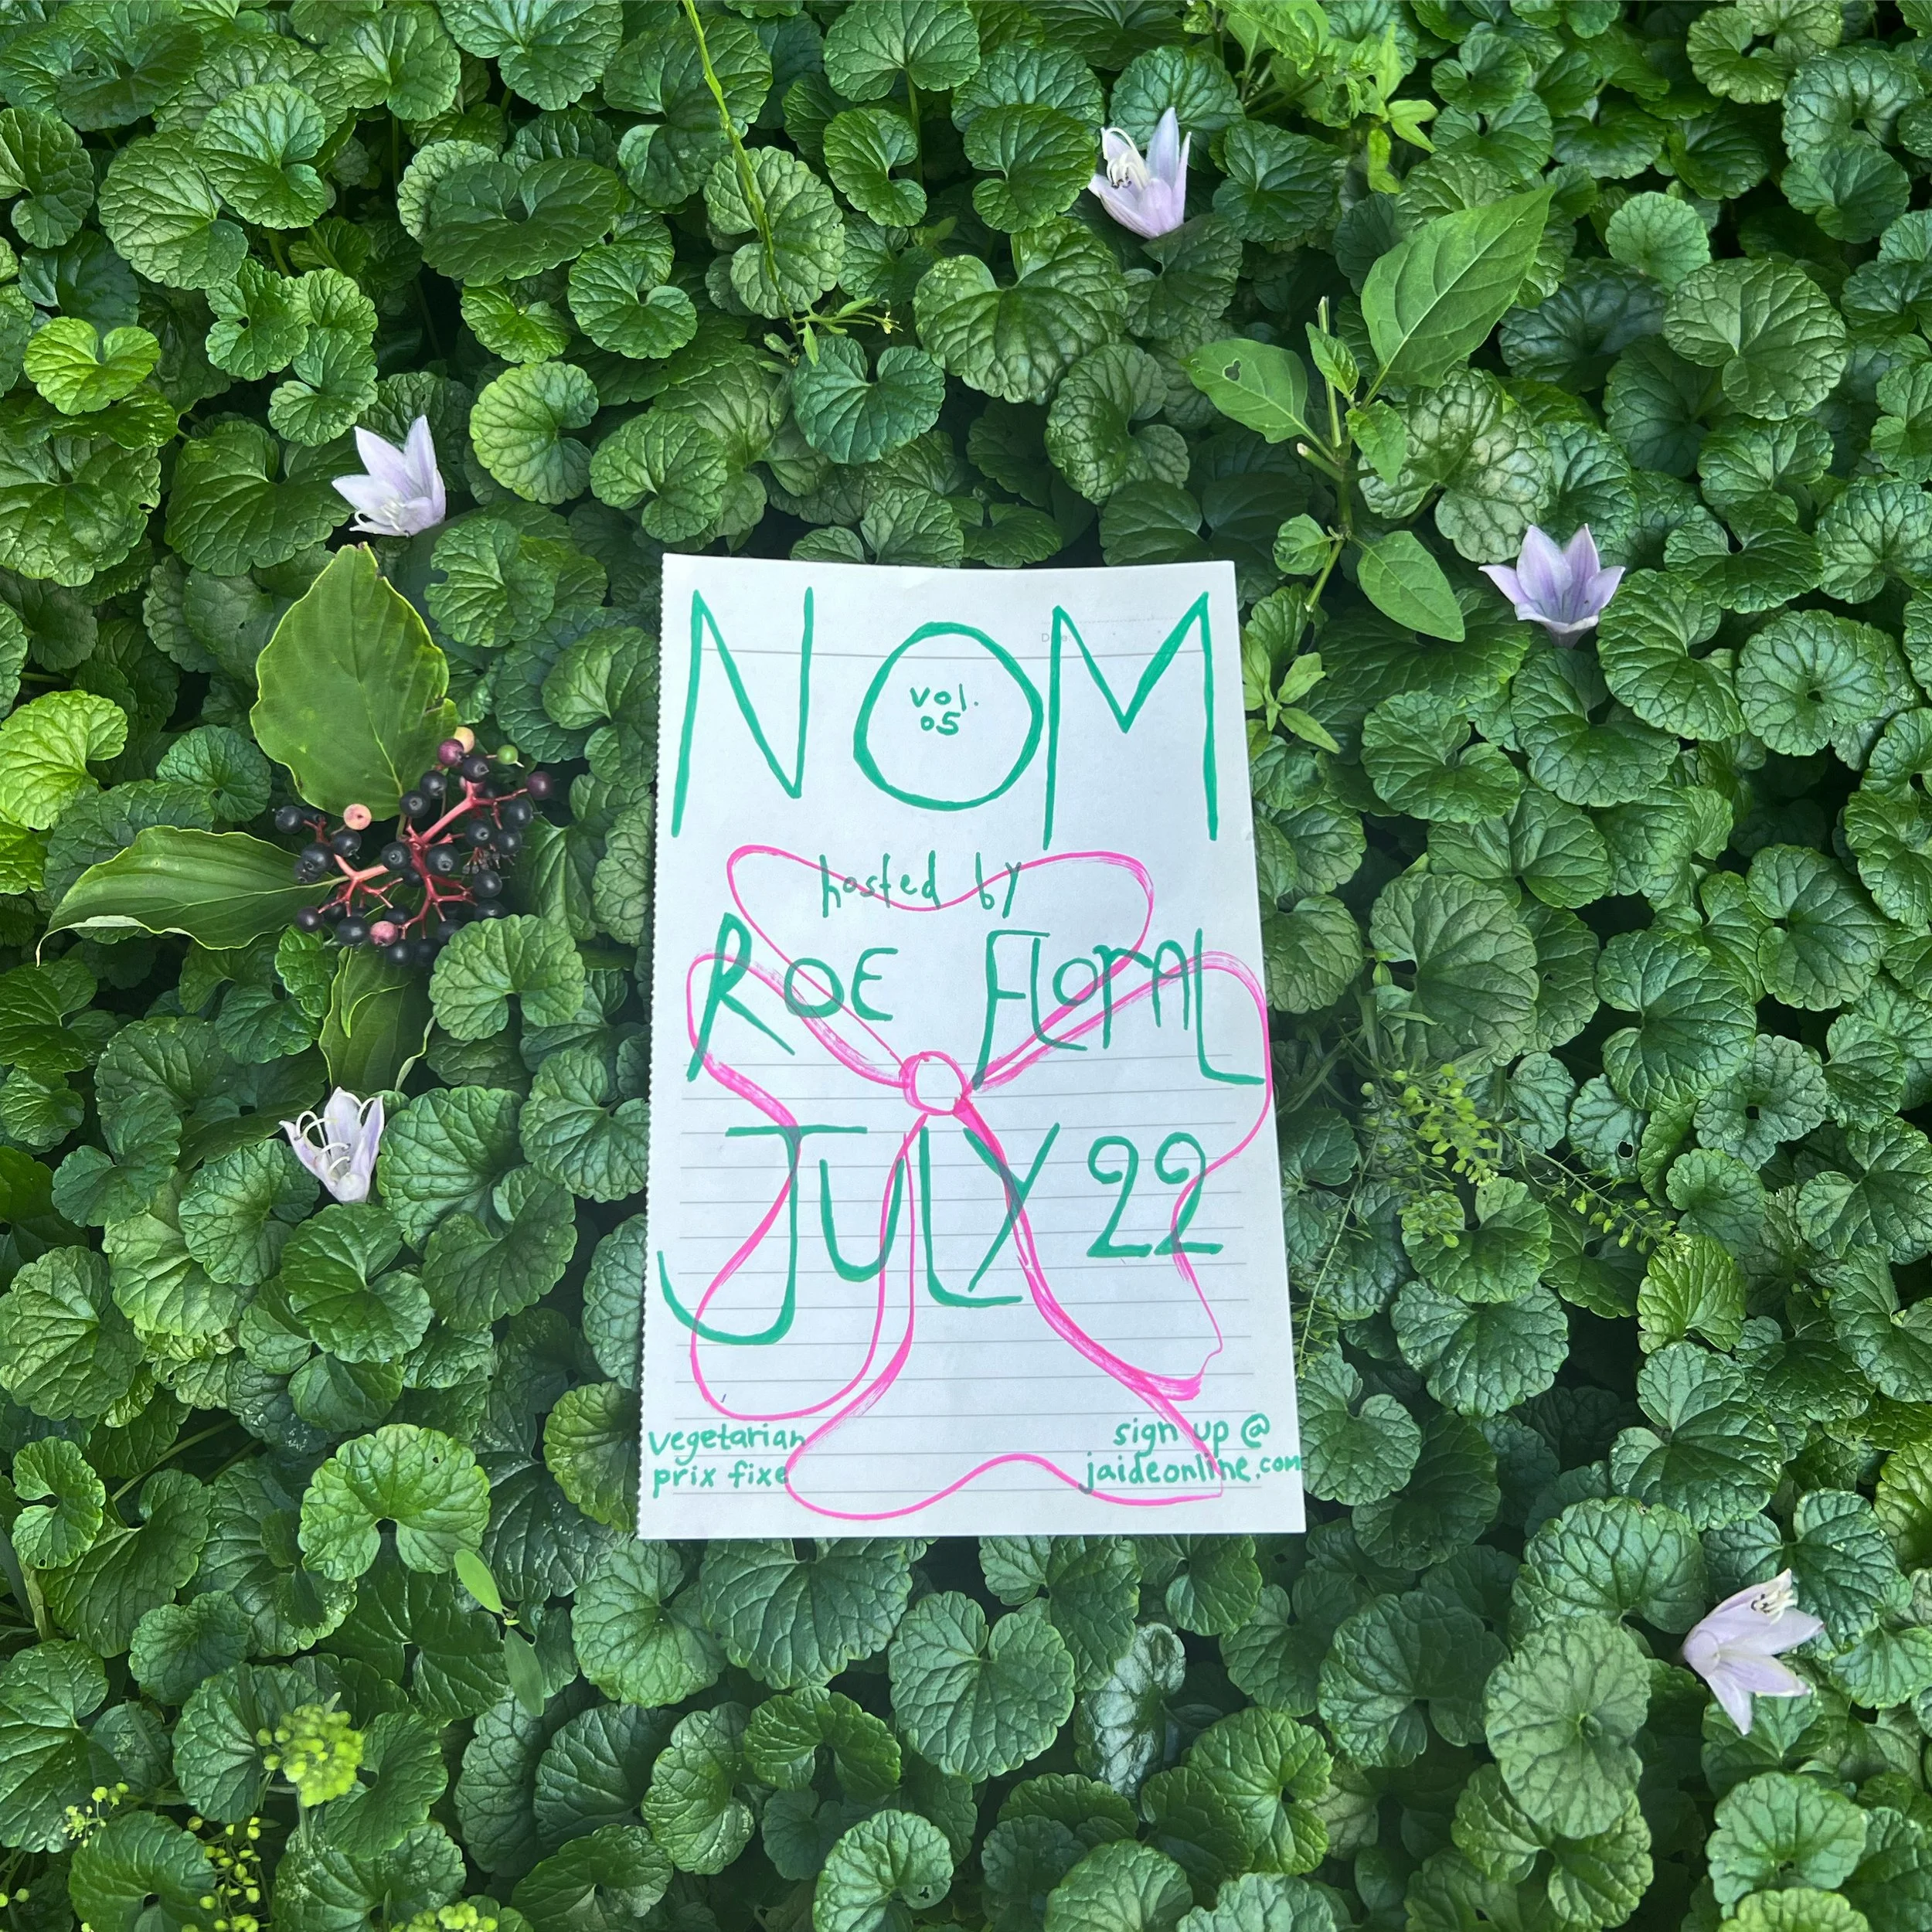 NOM
vol.
05
Date
hosted by
ROE FLORAL
JULY 22
vegetarian
prix fixe
sign up @
jaideonline.com